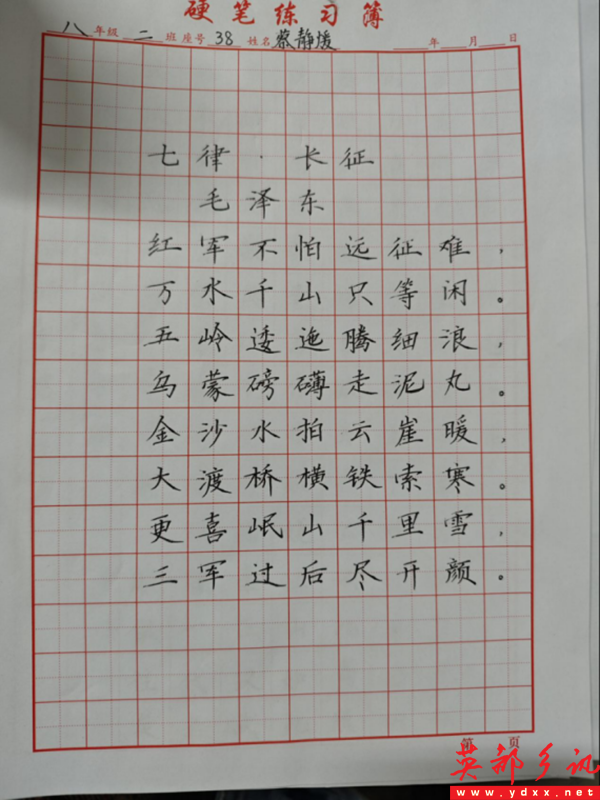 硬笔练习簿
八年级 二 班 座号 38 姓名 蔡静媛 年 月 日
七律·长征
毛泽东
红军不怕远征难，
万水千山只等闲。
五岭逶迤腾细浪，
乌蒙磅礴走泥丸。
金沙水拍云崖暖，
大渡桥横铁索寒。
更喜岷山千里雪，
三军过后尽开颜。
第 页
英都乡讯
www.ydxx.net